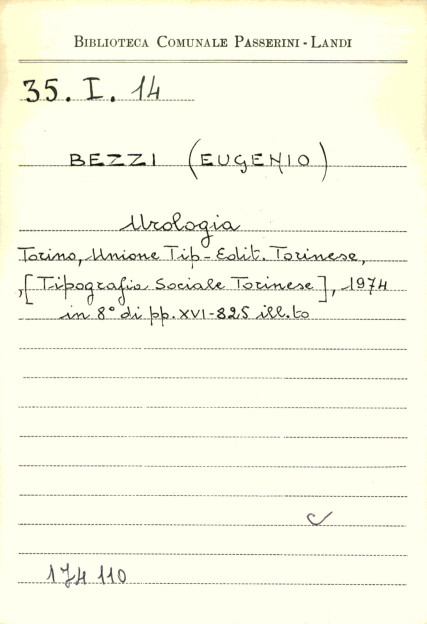 BIBLIOTECA COMUNALE PASSERINI - LANDI
35. I. 14
BEZZI (EUGENIO)
Urologia
Torino, Unione Tip-Edit. Torinese,
,[Tipografia Sociale Torinese], 1974
in 8° di pp. XVI-825 ill.to
174 110